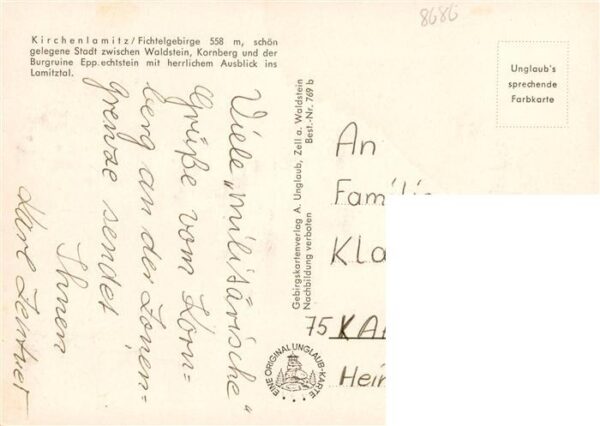 8686
Kirchenlamitz/Fichtelgebirge 558 m, schön
gelegene Stadt zwischen Waldstein, Kornberg und der
Burgruine Epp.echtstein mit herrlichem Ausblick ins
Lamitztal.
Viele „militärische"
Grüße vom Korn-
berg an der Zonen-
grenze sendet
Ihnen
Karl Zentner
Gebirgskartenverlag A. Unglaub, Zell a. Waldstein
Nachbildung verboten Best.-Nr. 769 b
EINE ORIGINAL UNGLAUB-KARTE
Unglaub's
sprechende
Farbkarte
An
Famili
Kla
75 KA
Hein